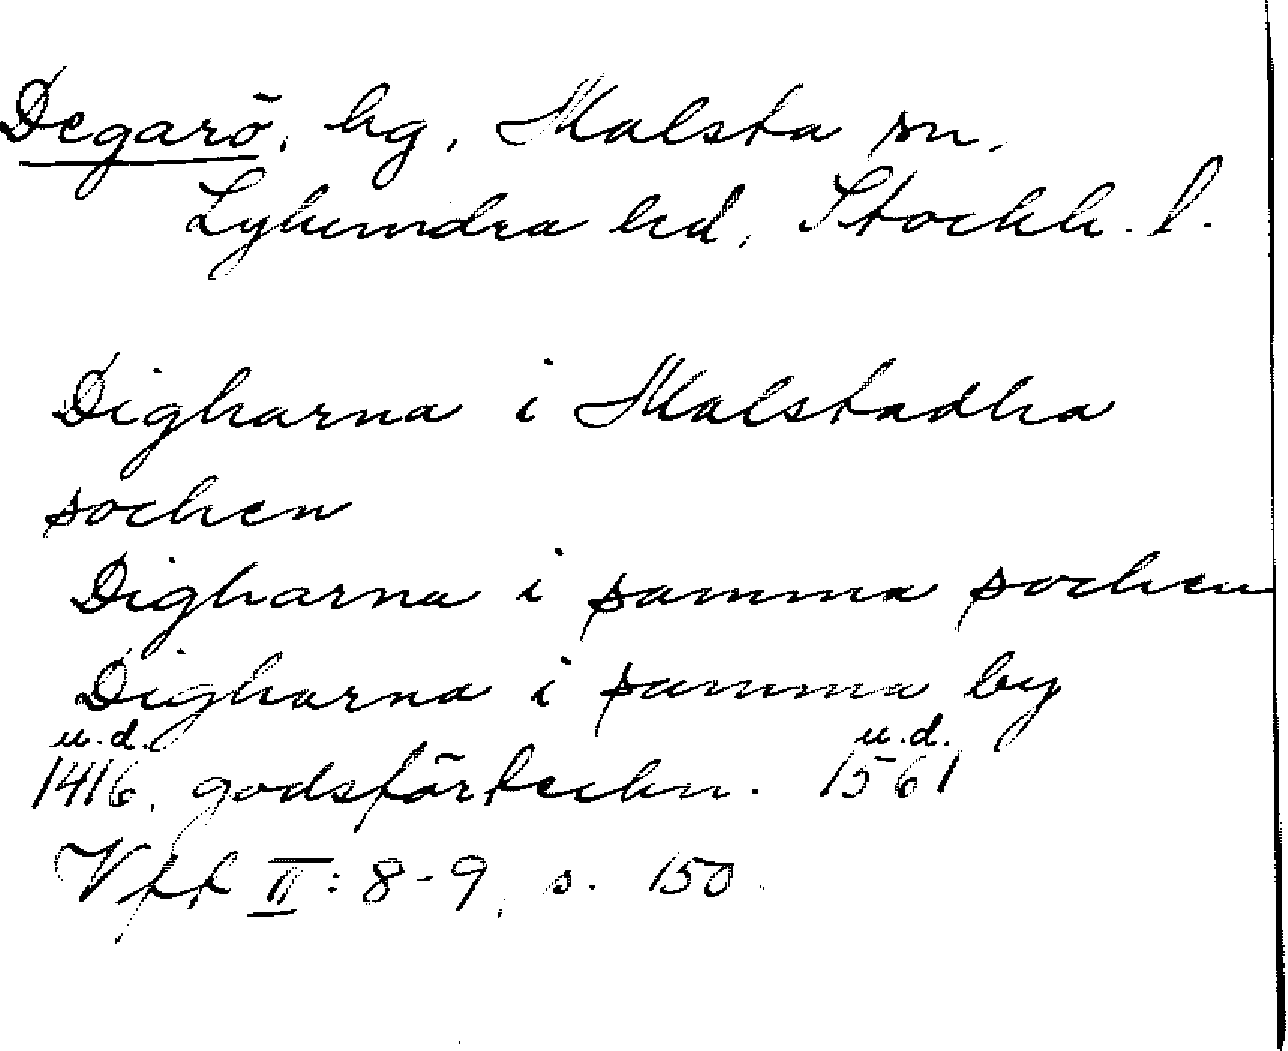 Degarö, hg, Malsta sn.
Lyhundra hd, Stockh. l.
Digharna i Malstadha
sochen
Digharna i samma sochen
Digharna i samma by
u.d. u.d.
1416, godsförteckn. 1561
Vff II: 8-9, s. 150.